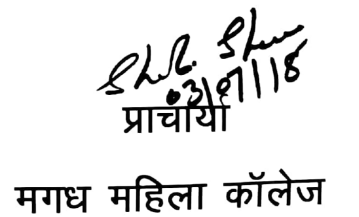 03/07/18
प्राचार्या
मगध महिला कॉलेज